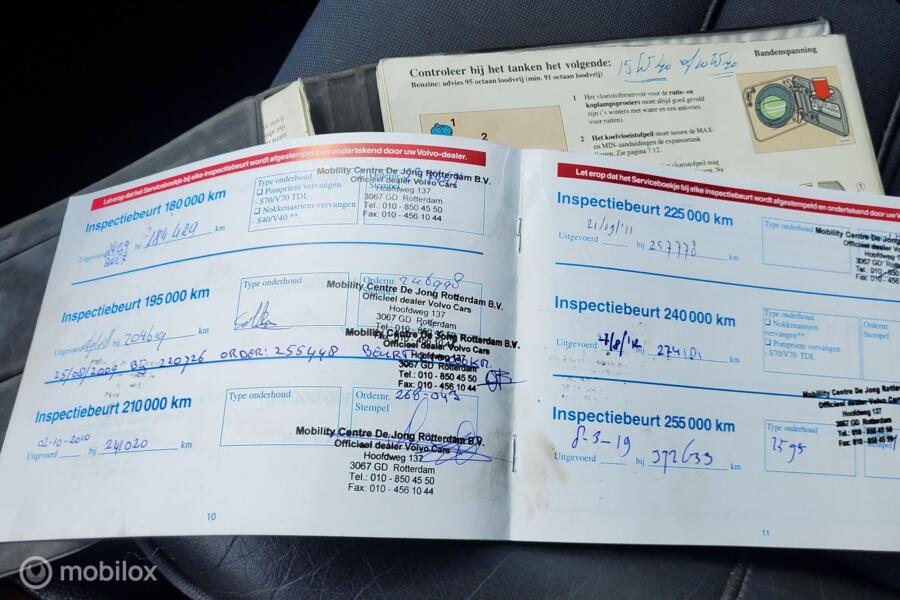 Controleer bij het tanken het volgende: 15W40 of/10W40
Bandenspanning
Benzine: advies 95 octaan loodvrij (min. 91 octaan loodvrij)
1 Het vloeistofreservoir voor de ruite- en
koplampsproeiers moet altijd goed gevuld
zijn ('s winters met water en een antivries
voor ruiten).
2 Het koelvloeistofpeil moet tussen de MAX-
en MIN-aanduidingen de expansietank
liggen. Zie pagina 7:12.
1
2
Let erop dat het Serviceboekje bij elke inspectiebeurt wordt afgestempeld en ondertekend door uw Volvo-dealer.
Inspectiebeurt 180 000 km
Uitgevoerd bij 184429 km
Type onderhoud
❏ Pompriem vervangen
- S70/V70 TDI.
❏ Nokkenasriem vervangen
- S40/V40 **.
Stempel
Mobility Centre De Jong Rotterdam B.V.
Officieel dealer Volvo Cars
Hoofdweg 137
3067 GD Rotterdam
Tel.: 010 - 850 45 50
Fax: 010 - 456 10 44
Inspectiebeurt 195 000 km
Uitgevoerd bij 204619 km
Type onderhoud
Ordernr. 246998
Stempel
Mobility Centre De Jong Rotterdam B.V.
Officieel dealer Volvo Cars
Hoofdweg 137
3067 GD Rotterdam
Tel.: 010 - 850 45 50
Mobility Centre De Jong Rotterdam B.V.
Officieel dealer Volvo Cars
Hoofdweg 137
3067 GD Rotterdam
Tel.: 010 - 850 45 50
Fax: 010 - 456 10 44
25/08/2009 Bij 220726 ORDER: 255448 BEURT
Inspectiebeurt 210 000 km
02-10-2010
Uitgevoerd bij 241020 km
Type onderhoud
Ordernr. 268-043
Stempel
Mobility Centre De Jong Rotterdam B.V.
Officieel dealer Volvo Cars
Hoofdweg 137
3067 GD Rotterdam
Tel.: 010 - 850 45 50
Fax: 010 - 456 10 44
10
Let erop dat het Serviceboekje bij elke inspectiebeurt wordt afgestempeld en ondertekend door uw
Inspectiebeurt 225 000 km
21/09/'11
Uitgevoerd bij 257778 km
Type onderhoud
Mobility Centre De Jong
Officieel dealer
Hoofdweg
3067 GD Rot
Tel.: 010 - 850
Fax: 010 - 456
Inspectiebeurt 240 000 km
Uitgevoerd 7/8/12 bij 274181 km
Type onderhoud
❏ Nokkenasriem
vervangen**
❏ Pompriem vervangen
- S70/V70 TDI.
Ordernr.
Stempel
Mobility Centre De Jong Rotterd
Officieel dealer Volvo
Hoofdweg
3067 GD Rott
Inspectiebeurt 255 000 km
8-3-19
Uitgevoerd bij 372633 km
Type onderhoud
Stempel
11
mobilox